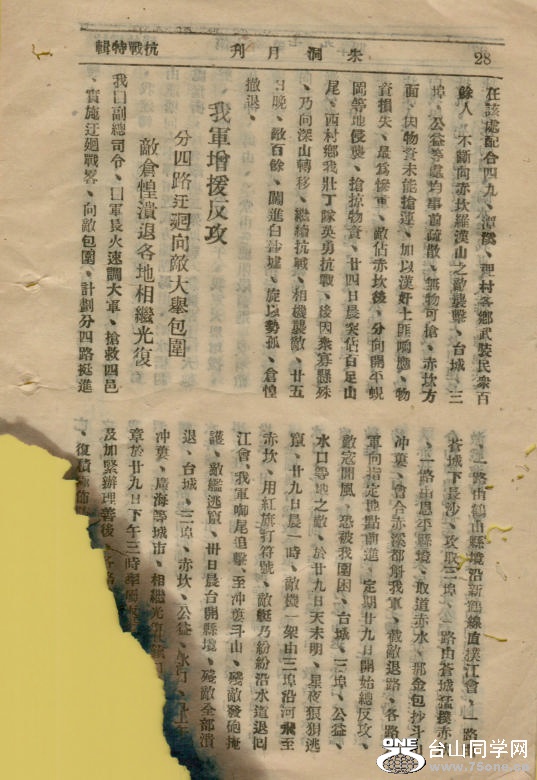 28
朱洞月刊
抗戰特輯
在該處配合四九、潭溪、理村各鄉武裝民衆百
餘人、不斷向赤坎羅漢山之敵襲擊、台城、三
埠、公益等處均事前疏散、無物可搶、赤坎方
面、因物資未能搶運、加以漢奸土匪响應、物
資損失、最為慘重、敵佔赤坎後、分向開平蜆
岡等地侵襲、搶掠物資、廿四日晨突佔百足山
尾、西村鄉我壯丁隊英勇抗戰、後因衆寡懸殊
、乃向深山轉移、繼續抗戰、相機襲敵、廿五
日晚、敵百餘、闖進白沙墟、旋以勢孤、倉惶
撤退、
我軍增援反攻
分四路迂迴向敵大舉包圍
敵倉惶潰退各地相繼光復
我囗副總司令、囗軍長火速調大軍、搶救四邑
、實施迂迴戰畧、向敵包圍、計劃分四路挺進
、一路由鶴山縣境沿新鶴線直撲江會、一路
蒼城下長沙、攻取三埠、一路由蒼城猛撲赤
、一路由恩平縣境、取道赤水、那金包抄斗
冲蔞、會合赤溪都斛我軍、截敵退路、各路
軍向指定地點前進、定期廿九日開始總反攻、
敵寇聞風、恐被我圍困、台城、三埠、公益、
水口等地之敵、於廿九日天未明、星夜狼狽逃
竄、廿九日晨一時、敵機一架由三埠沿河飛至
赤坎、用紅旗打符號、敵艇乃紛紛沿水道退回
江會、我軍啣尾追擊、至冲蔞斗山、殘敵發砲掩
護、敵艦逃竄、卅日晨台開縣境、殘敵全部潰
退、台城、三埠、赤坎、公益、水口、斗山
冲蔞、廣海等城市、相繼光復
章於廿九日下午三時率
及加緊辦理善後、
、復積
台山同学网
www.75one.com